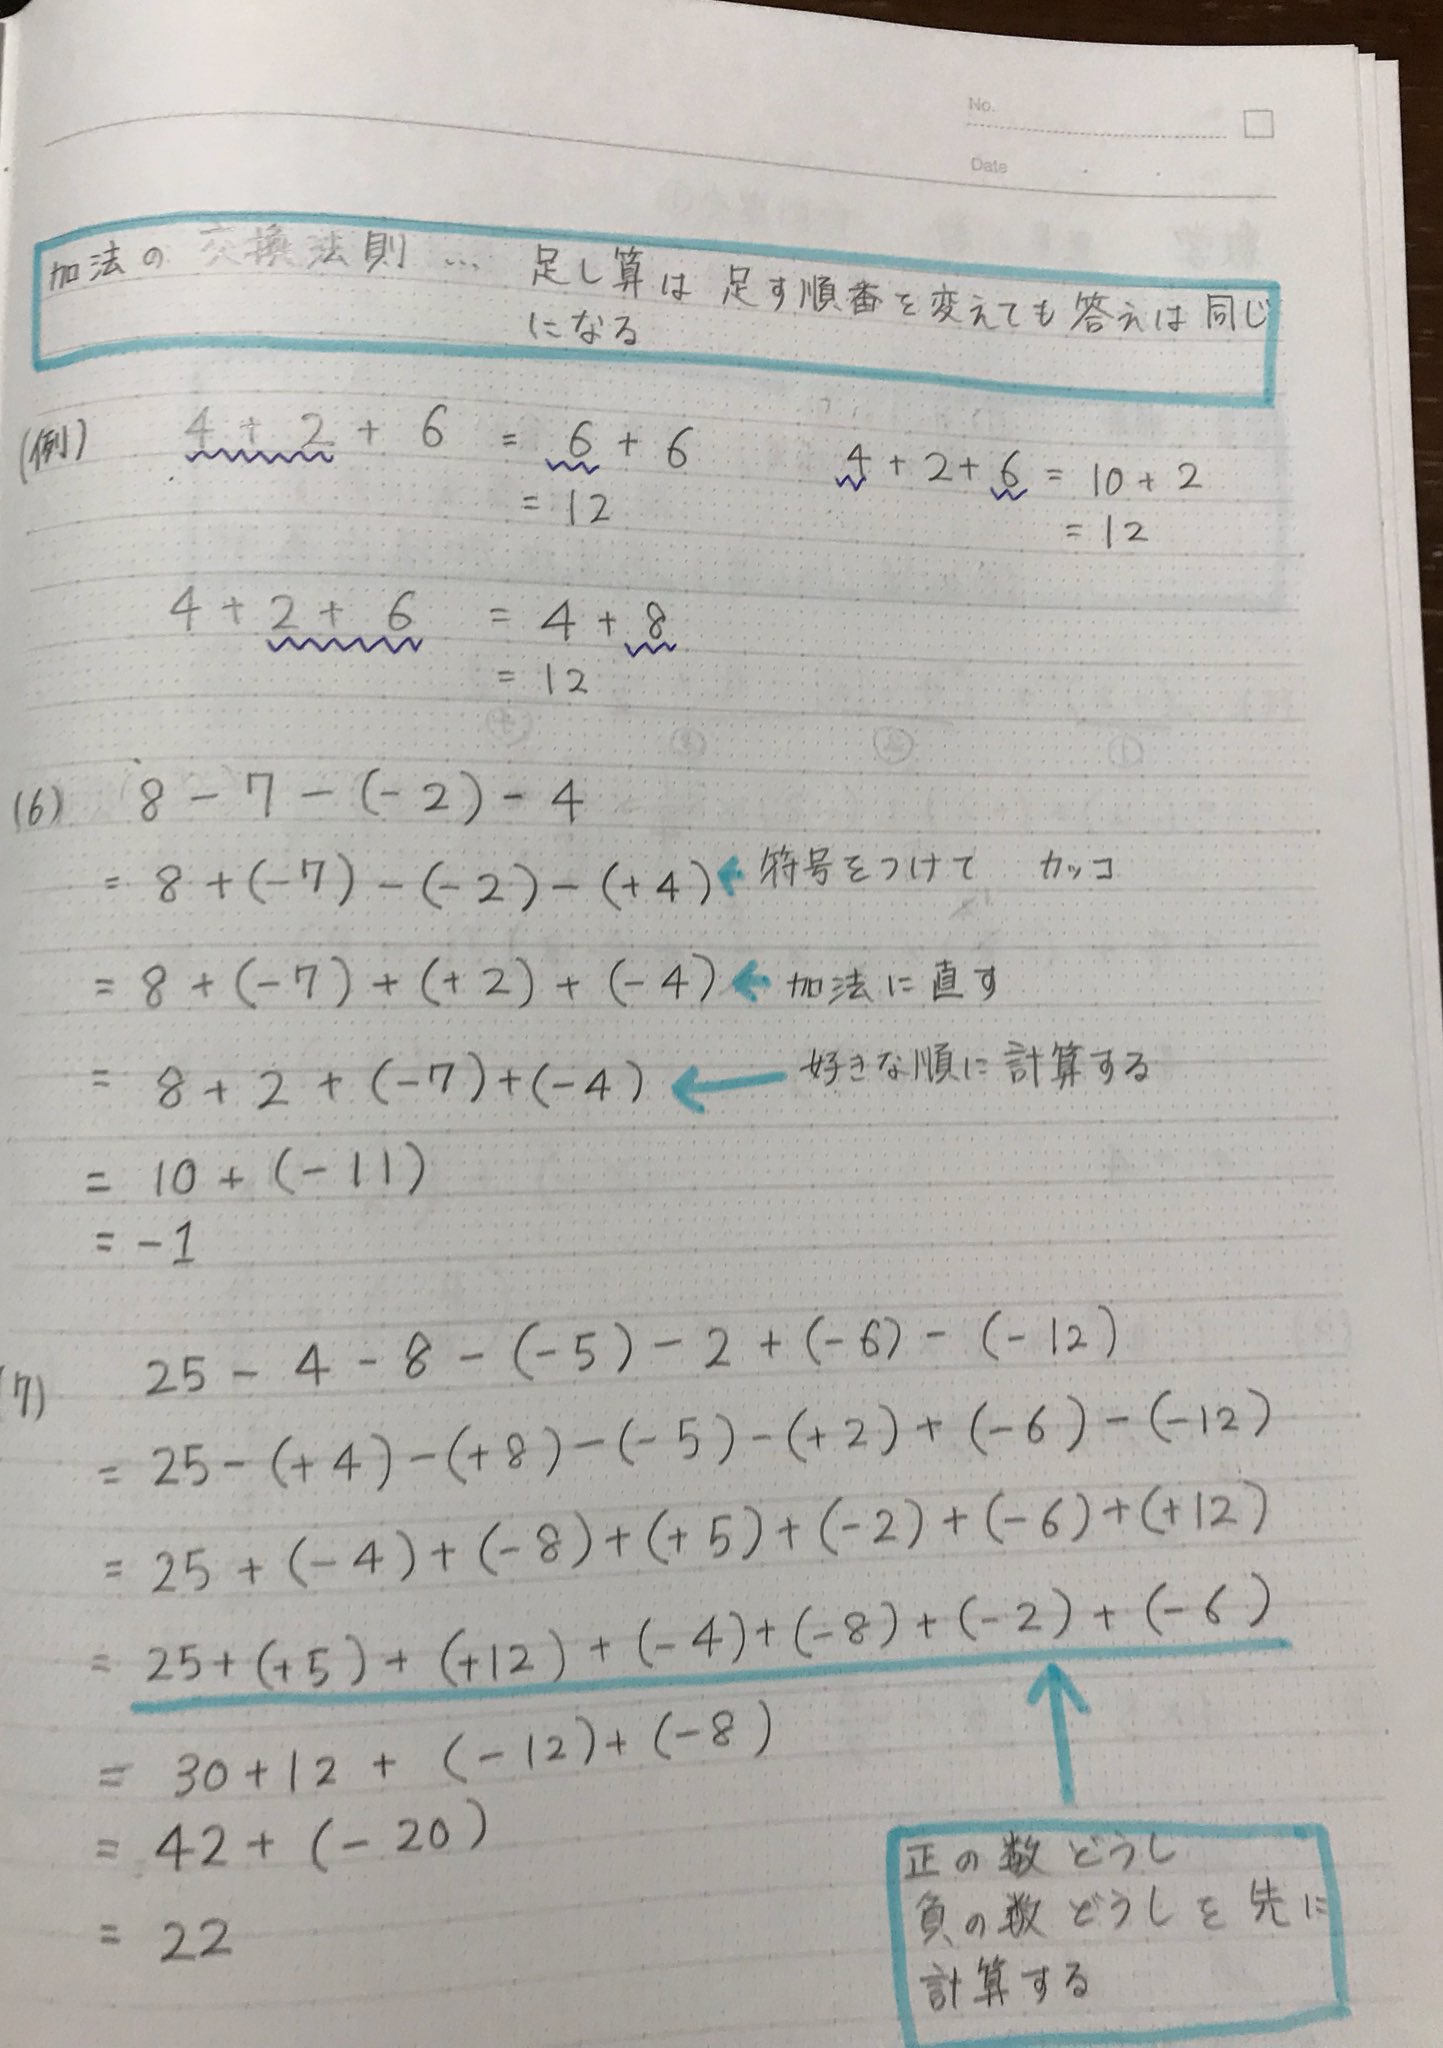 No.
Date
加法の 交換法則 … 足し算は 足す順番を変えても 答えは 同じ
になる
(例) 4 + 2 + 6 = 6 + 6
= 12
4 + 2 + 6 = 10 + 2
= 12
4 + 2 + 6 = 4 + 8
= 12
(6) 8 - 7 - (-2) - 4
= 8 + (-7) - (-2) - (+4) ← 符号をつけて カッコ
= 8 + (-7) + (+2) + (-4) ← 加法に直す
= 8 + 2 + (-7) + (-4) ← 好きな順に計算する
= 10 + (-11)
= -1
(7) 25 - 4 - 8 - (-5) - 2 + (-6) - (-12)
= 25 - (+4) - (+8) - (-5) - (+2) + (-6) - (-12)
= 25 + (-4) + (-8) + (+5) + (-2) + (-6) + (+12)
= 25 + (+5) + (+12) + (-4) + (-8) + (-2) + (-6)
= 30 + 12 + (-12) + (-8)
= 42 + (-20)
= 22
正の数どうし
負の数どうしを先に
計算する